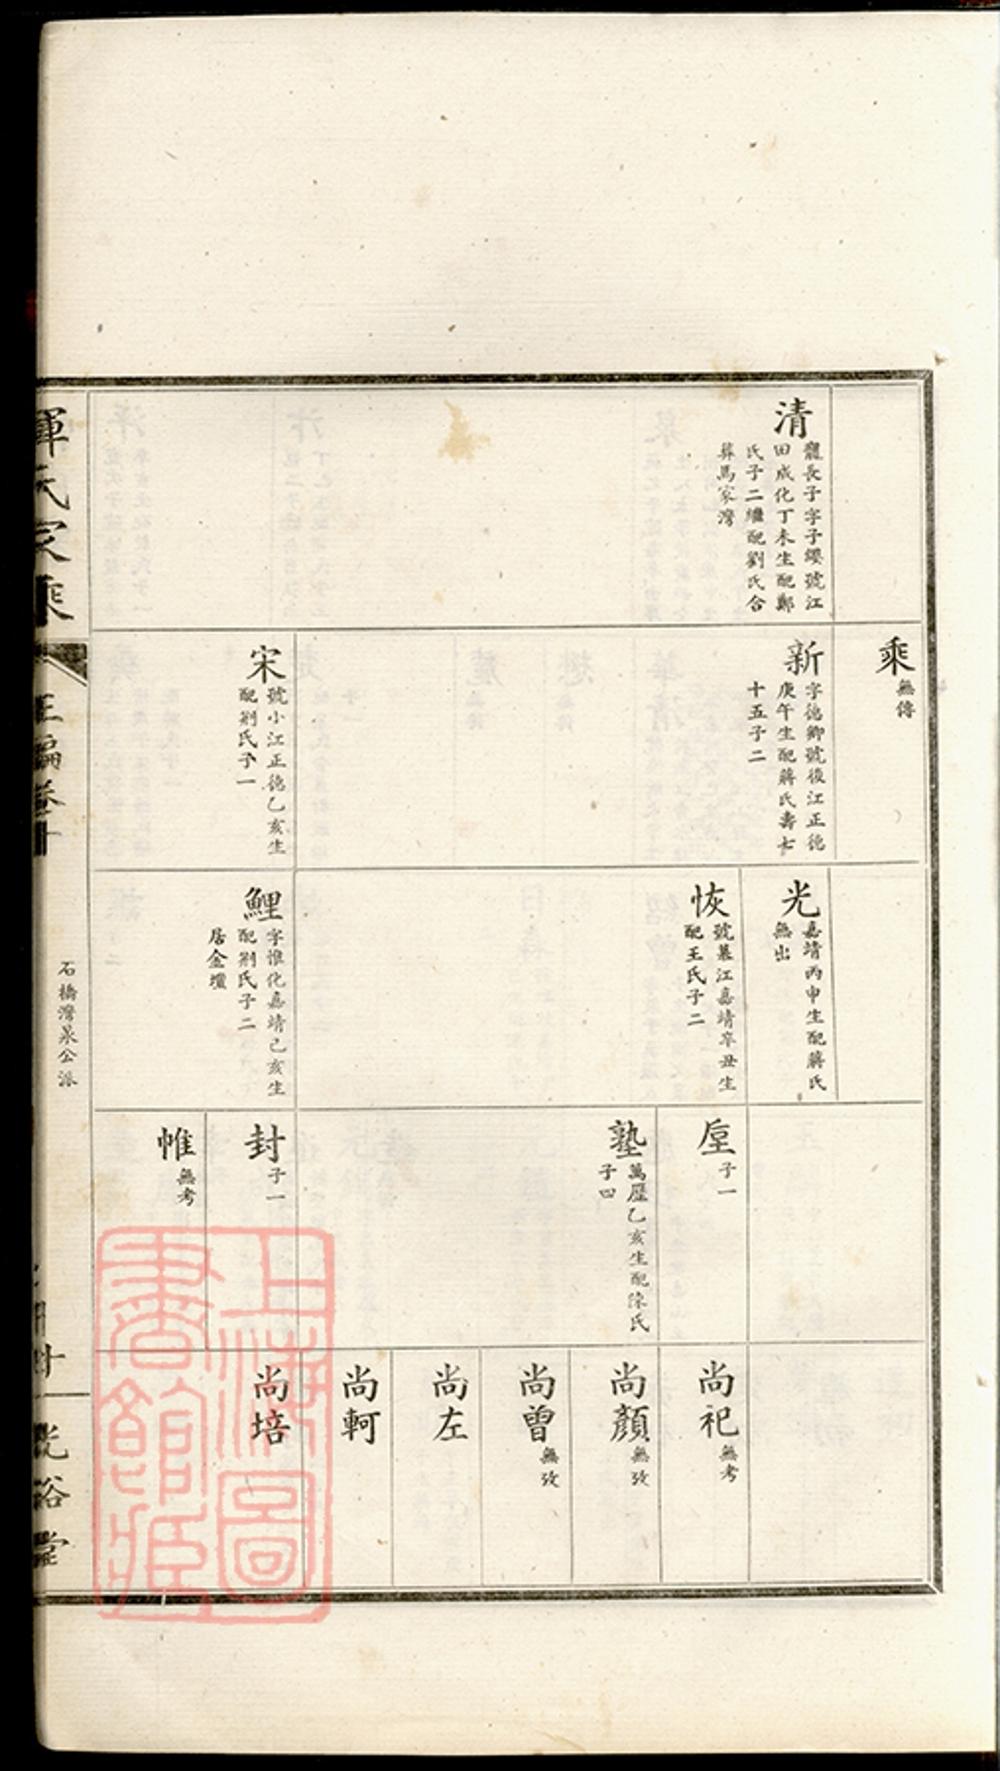 清
寵長子字子纓號江
田成化丁未生配鄭
氏子二繼配劉氏合
葬馬家灣
乘
無傳
新
字德卿號後江正德
庚午生配蔣氏壽七
十五子二
宋
號小江正德乙亥生
配荊氏子一
光
嘉靖丙申生配蔣氏
無出
恢
號慕江嘉靖辛丑生
配王氏子二
鯉
字惟化嘉靖己亥生
配荊氏子二
居金壇
垕
子一
塾
萬厯乙亥生配陳氏
子四
封
子一
帷
無考
尚祀
無考
尚顏
無攷
尚曾
無攷
尚左
尚軻
尚培
惲氏家乘
正編卷十
石橋灣泉公派
光裕堂
上海圖書館藏